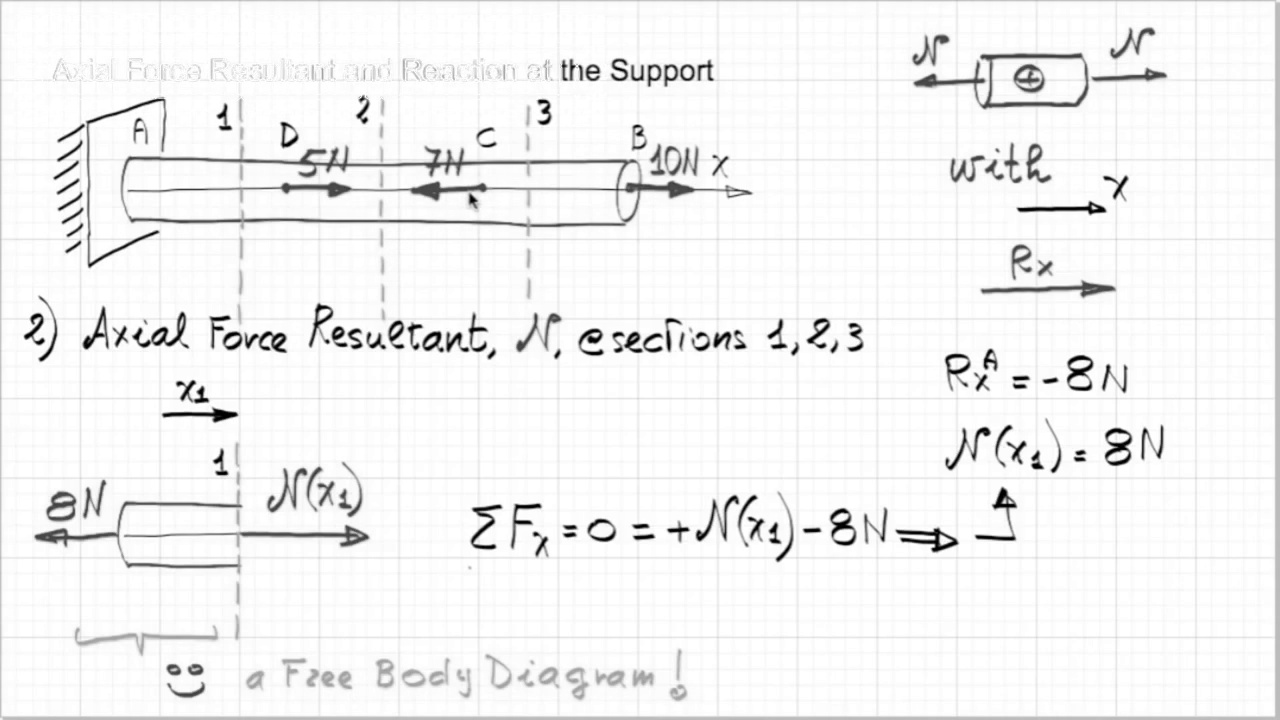 Axial Force Resultant and Reaction at the Support
N N
A 1 D 2 C 3 B
5N 7N 10N x
with
x
Rx
2) Axial Force Resultant, N, @sections 1,2,3
Rx^A = -8N
x1
N(x1) = 8N
1
8N N(x1)
ΣFx = 0 = +N(x1) - 8N ⇒
a Free Body Diagram!